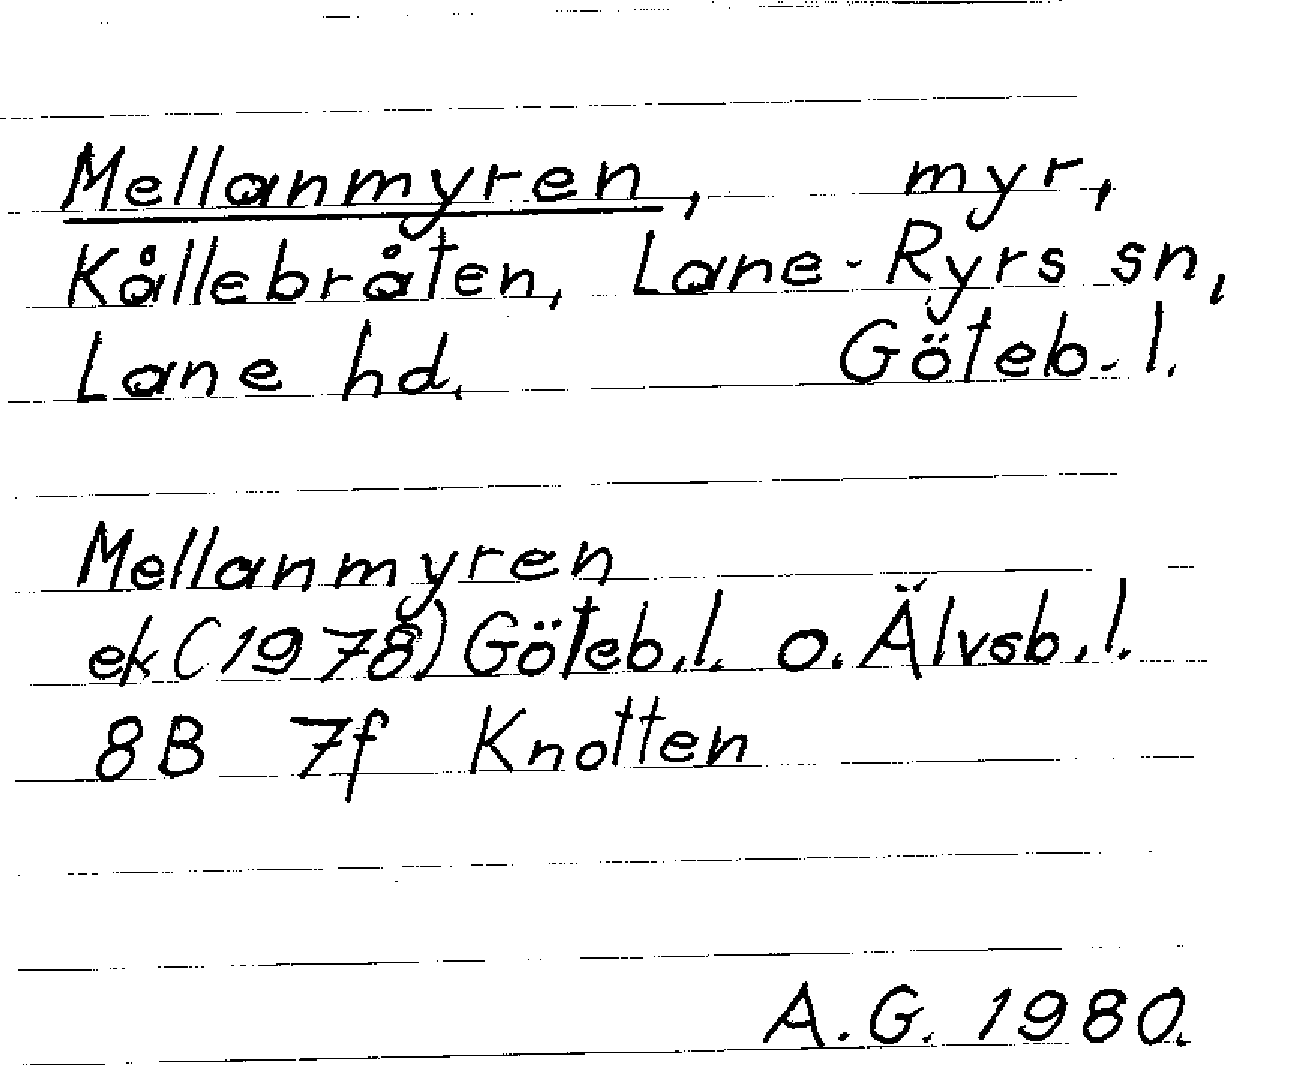 Mellanmyren, myr,
Kållebråten, Lane-Ryrs sn,
Lane hd. Göteb. l.
Mellanmyren
ek (1978) Göteb.l. o. Älvsb.l.
8B 7f Knotten
A.G. 1980.